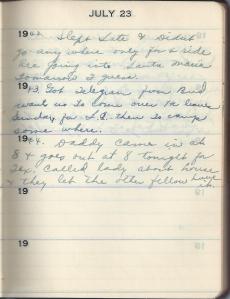 JULY 23
1942. Slept Late & Didnt
go any where only for a ride
are going into Santa Maria
Tomarrow I guess.
1943. Got Telegram from Bud
want us to come over to leave
Sunday for L.A. then to camp
some where.
1944. Daddy came in at
8 & goes out at 8 tonight for
Tex. Called lady about house
& they let the other fellow have
it.
19
19